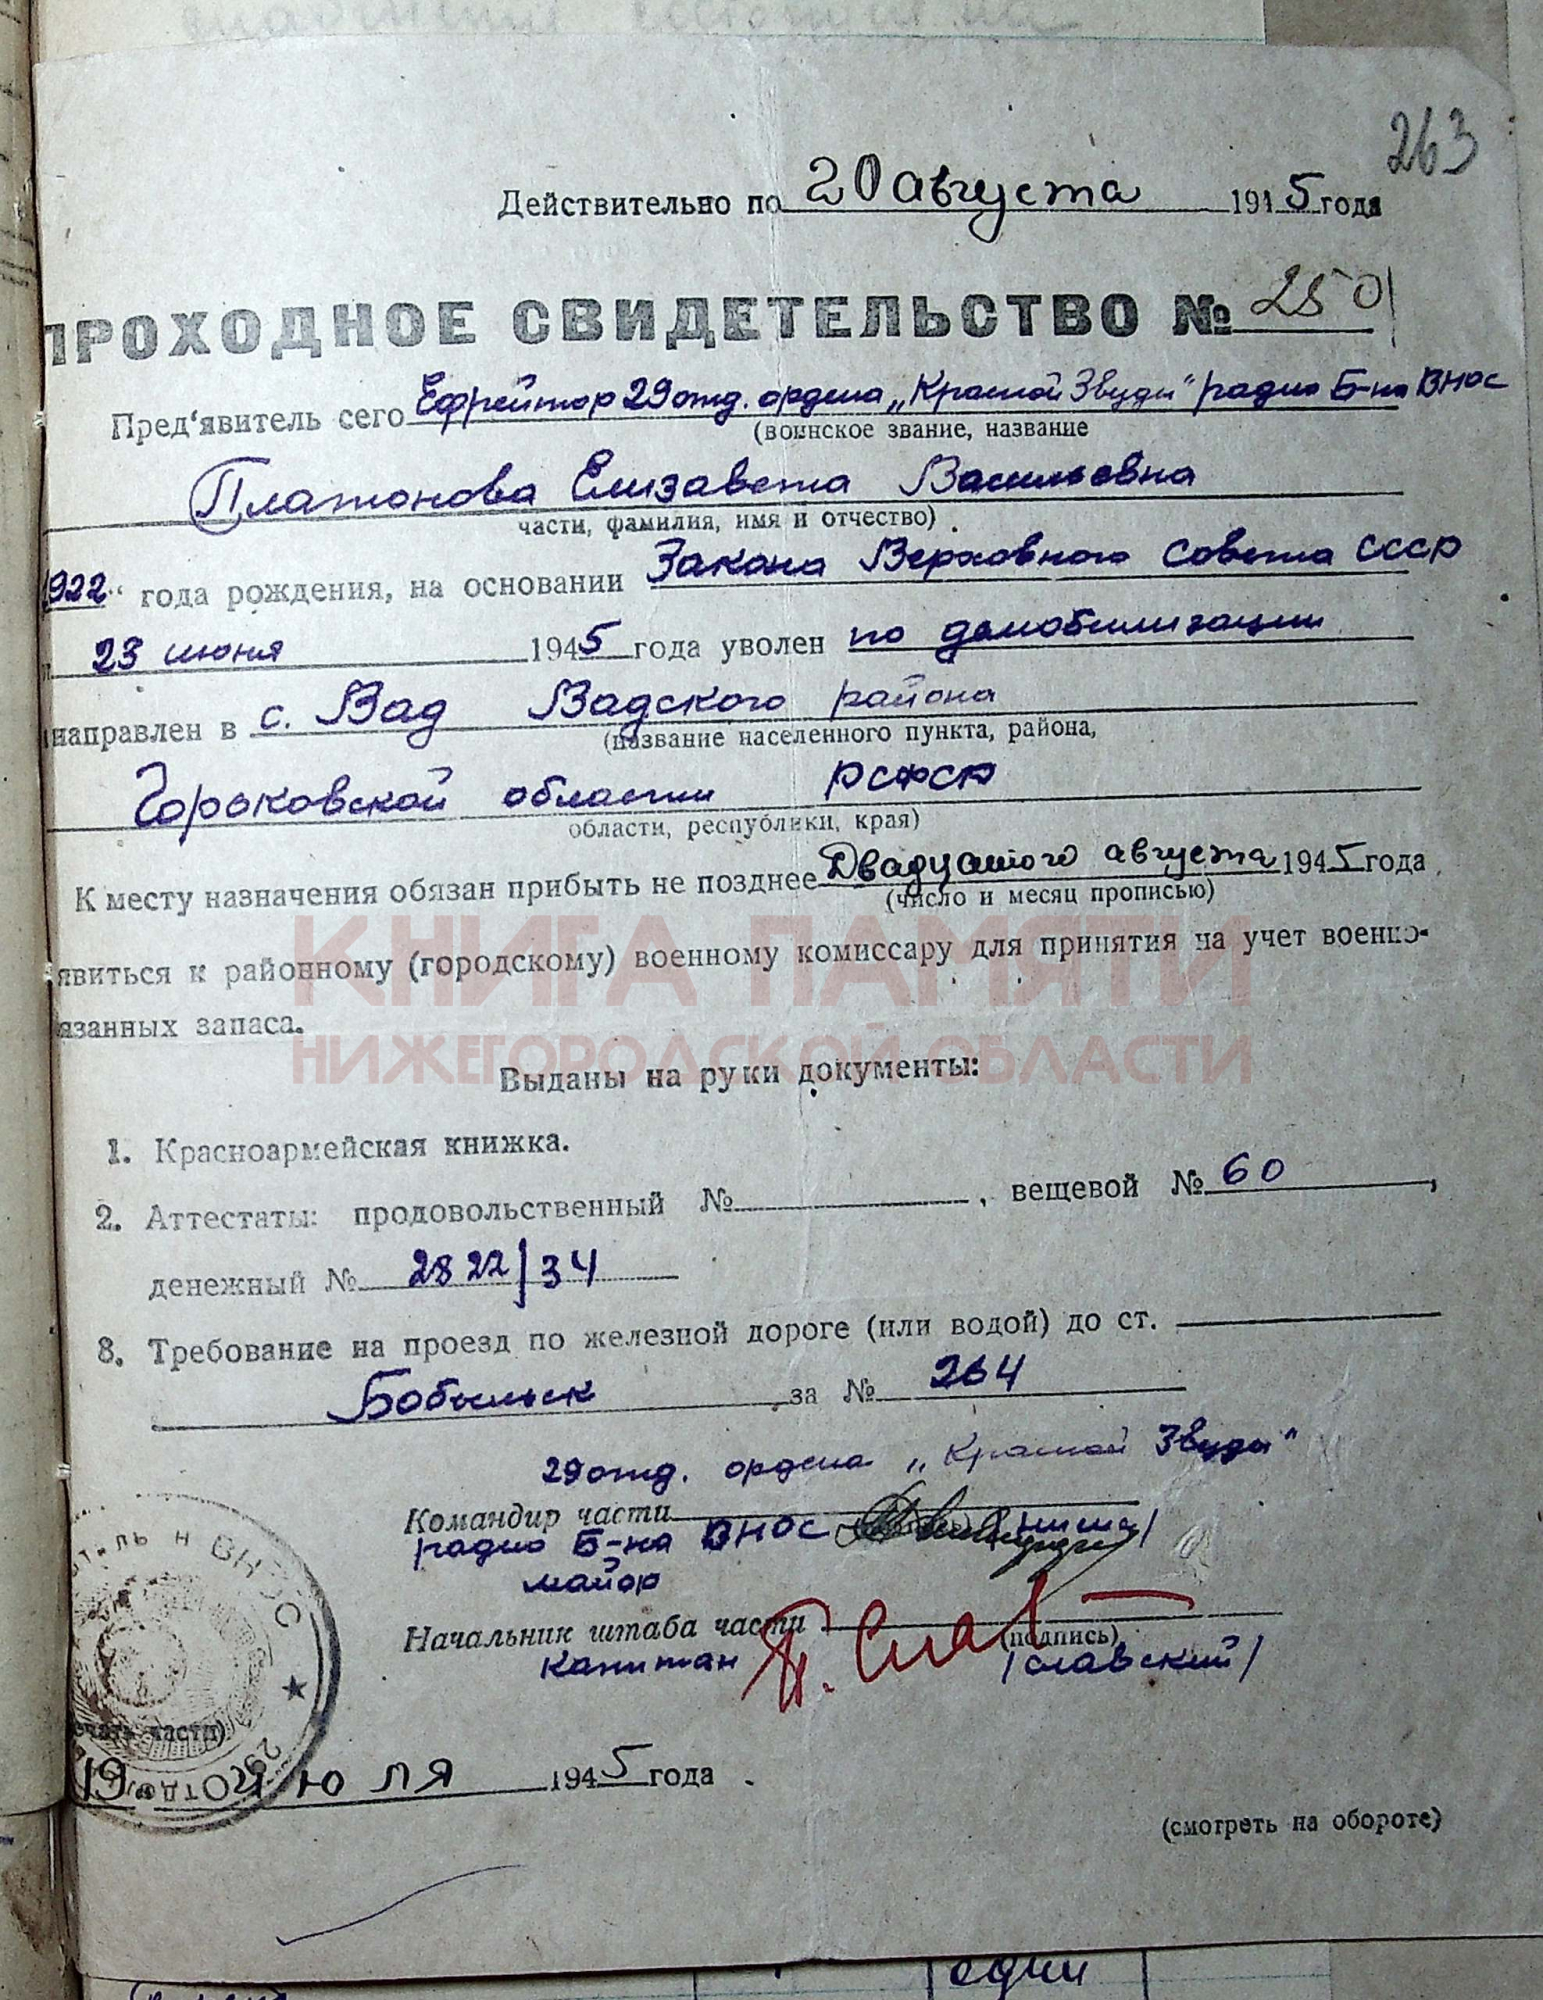 263
Действительно по 20 августа 1945 года
ПРОХОДНОЕ СВИДЕТЕЛЬСТВО № 250
Пред'явитель сего Ефрейтор 29 отд. ордена „Красной Звезды" радио Б-на ВНОС
(воинское звание, название
Платонова Елизавета Васильевна
части, фамилия, имя и отчество)
1922" года рождения, на основании Закона Верховного Совета СССР
23 июня 1945 года уволен по демобилизации
направлен в с. Вад Вадского района
(название населенного пункта, района,
Горьковской области РСФСР
области, республики, края)
К месту назначения обязан прибыть не позднее Двадцатого августа 1945 года
(число и месяц прописью)
явиться к районному (городскому) военному комиссару для принятия на учет военно-
язанных запаса.
КНИГА ПАМЯТИ
НИЖЕГОРОДСКОЙ ОБЛАСТИ
Выданы на руки документы:
1. Красноармейская книжка.
2. Аттестаты: продовольственный № , вещевой № 60 ,
денежный № 2822/34
3. Требование на проезд по железной дороге (или водой) до ст.
Бобыльск за № 264
29 отд. ордена „Красной Звезды"
Командир части
радио Б-на ВНОС
майор
Начальник штаба части
(подпись)
капитан /Славский/
ВНОС
ечать части)
29 Отд
19 июля 1945 года
(смотреть на обороте)